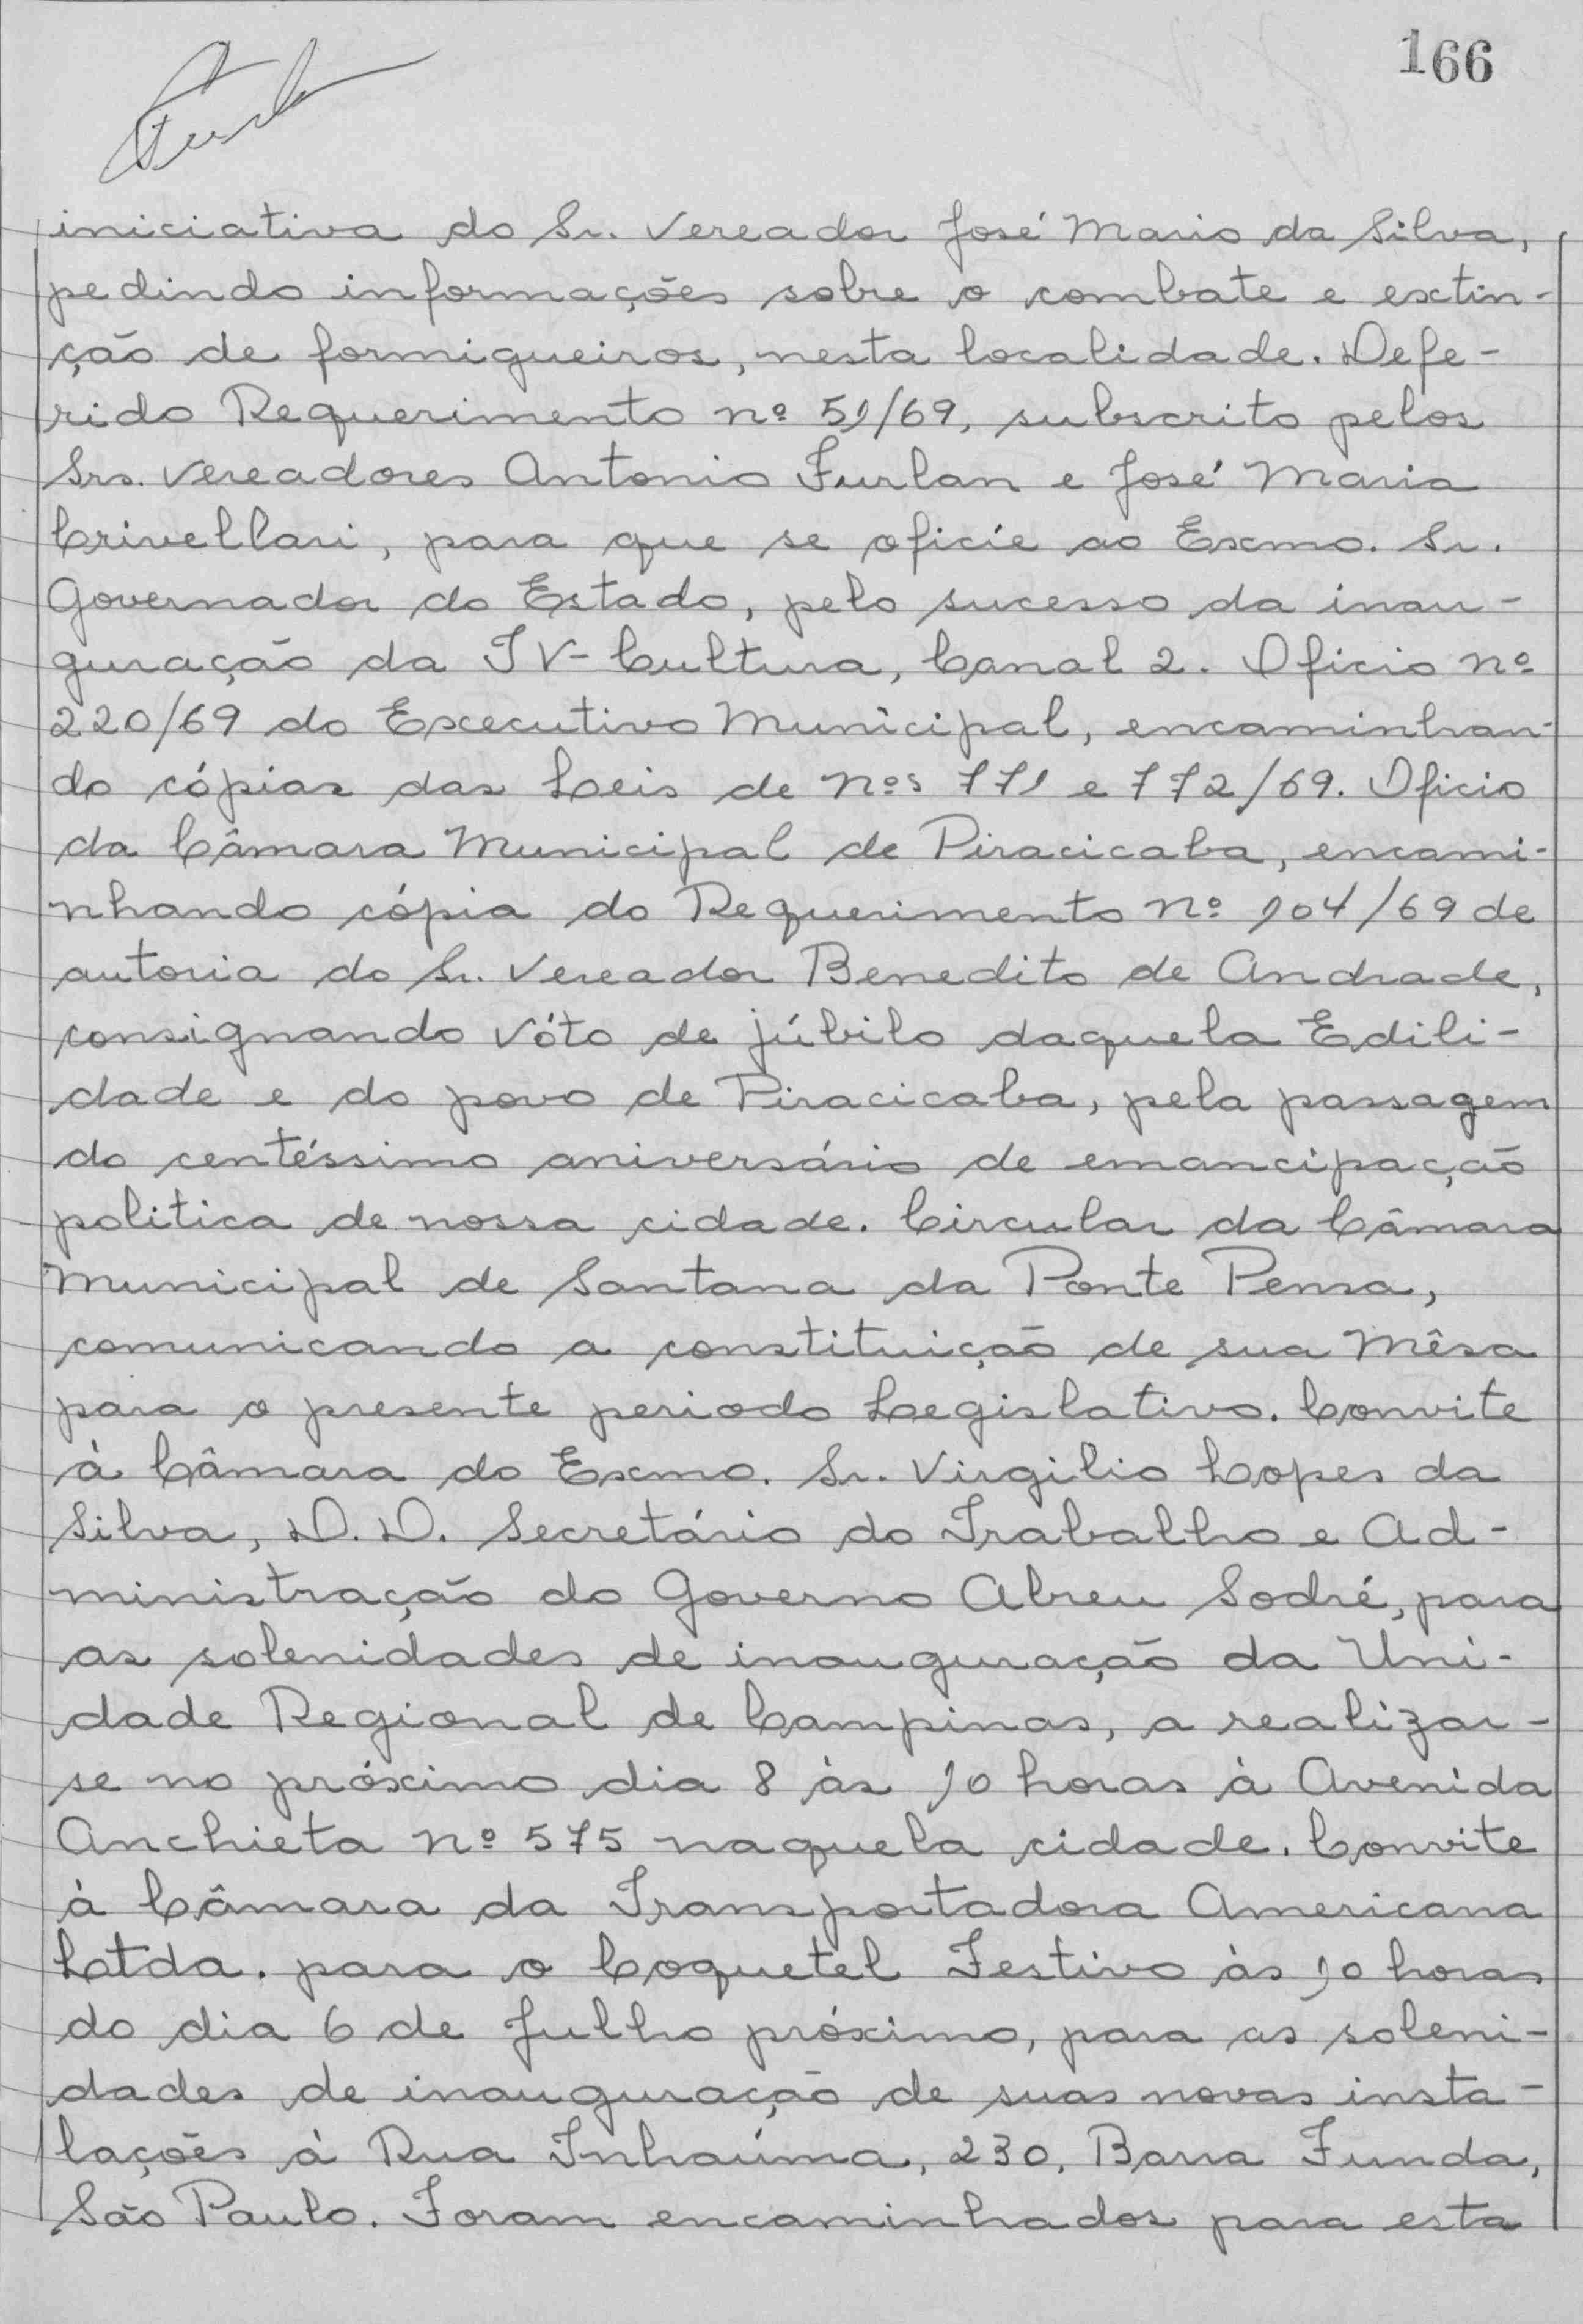 166
iniciativa do Sr. Vereador José Mario da Silva,
pedindo informações sobre o combate e extin-
ção de formigueiros, nesta localidade. Defe-
rido Requerimento nº 51/69, subscrito pelos
Srs. Vereadores Antonio Furlan e José Maria
Crivellari, para que se oficie ao Exmo. Sr.
Governador do Estado, pelo sucesso da inau-
guração da TV-Cultura, Canal 2. Oficio nº
220/69 do Executivo Municipal, encaminhan-
do cópias das Leis de nºs 771 e 772/69. Oficio
da Câmara Municipal de Piracicaba, encami-
nhando cópia do Requerimento nº 104/69 de
autoria do Sr. Vereador Benedito de Andrade,
consignando vóto de júbilo daquela Edili-
dade e do povo de Piracicaba, pela passagem
do centéssimo aniversário de emancipação
politica de nossa cidade. Circular da Câmara
Municipal de Santana da Ponte Pensa,
comunicando a constituição de sua Mêsa
para o presente periodo Legislativo. Convite
à Câmara do Exmo. Sr. Virgilio Lopes da
Silva, D.D. Secretário do Trabalho e Ad-
ministração do Governo Abreu Sodré, para
as solenidades de inauguração da Uni-
dade Regional de Campinas, a realizar-
se no próximo dia 8 às 10 horas à Avenida
Anchieta nº 575 naquela cidade. Convite
à Câmara da Transportadora Americana
Ltda. para o Coquetel Festivo às 10 horas
do dia 6 de Julho próximo, para as soleni-
dades de inauguração de suas novas insta-
lações à Rua Inhaúma, 230, Barra Funda,
São Paulo. Foram encaminhados para esta